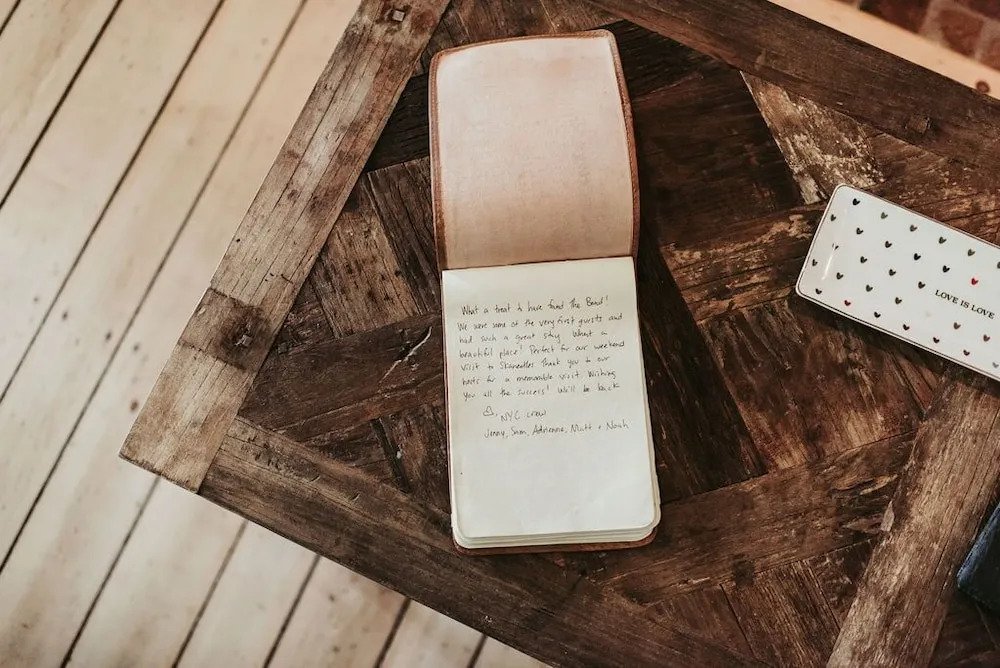 What a treat to have found The Bend!
We were some of the very first guests and
had such a great stay. What a
beautiful place! Perfect for our weekend
visit to Skaneateles. Thank you to our
hosts for a memorable visit. Wishing
you all the success! We'll be back
NYC crew
Jenny, Sam, Adrienne, Matt + Noah
LOVE IS LOVE